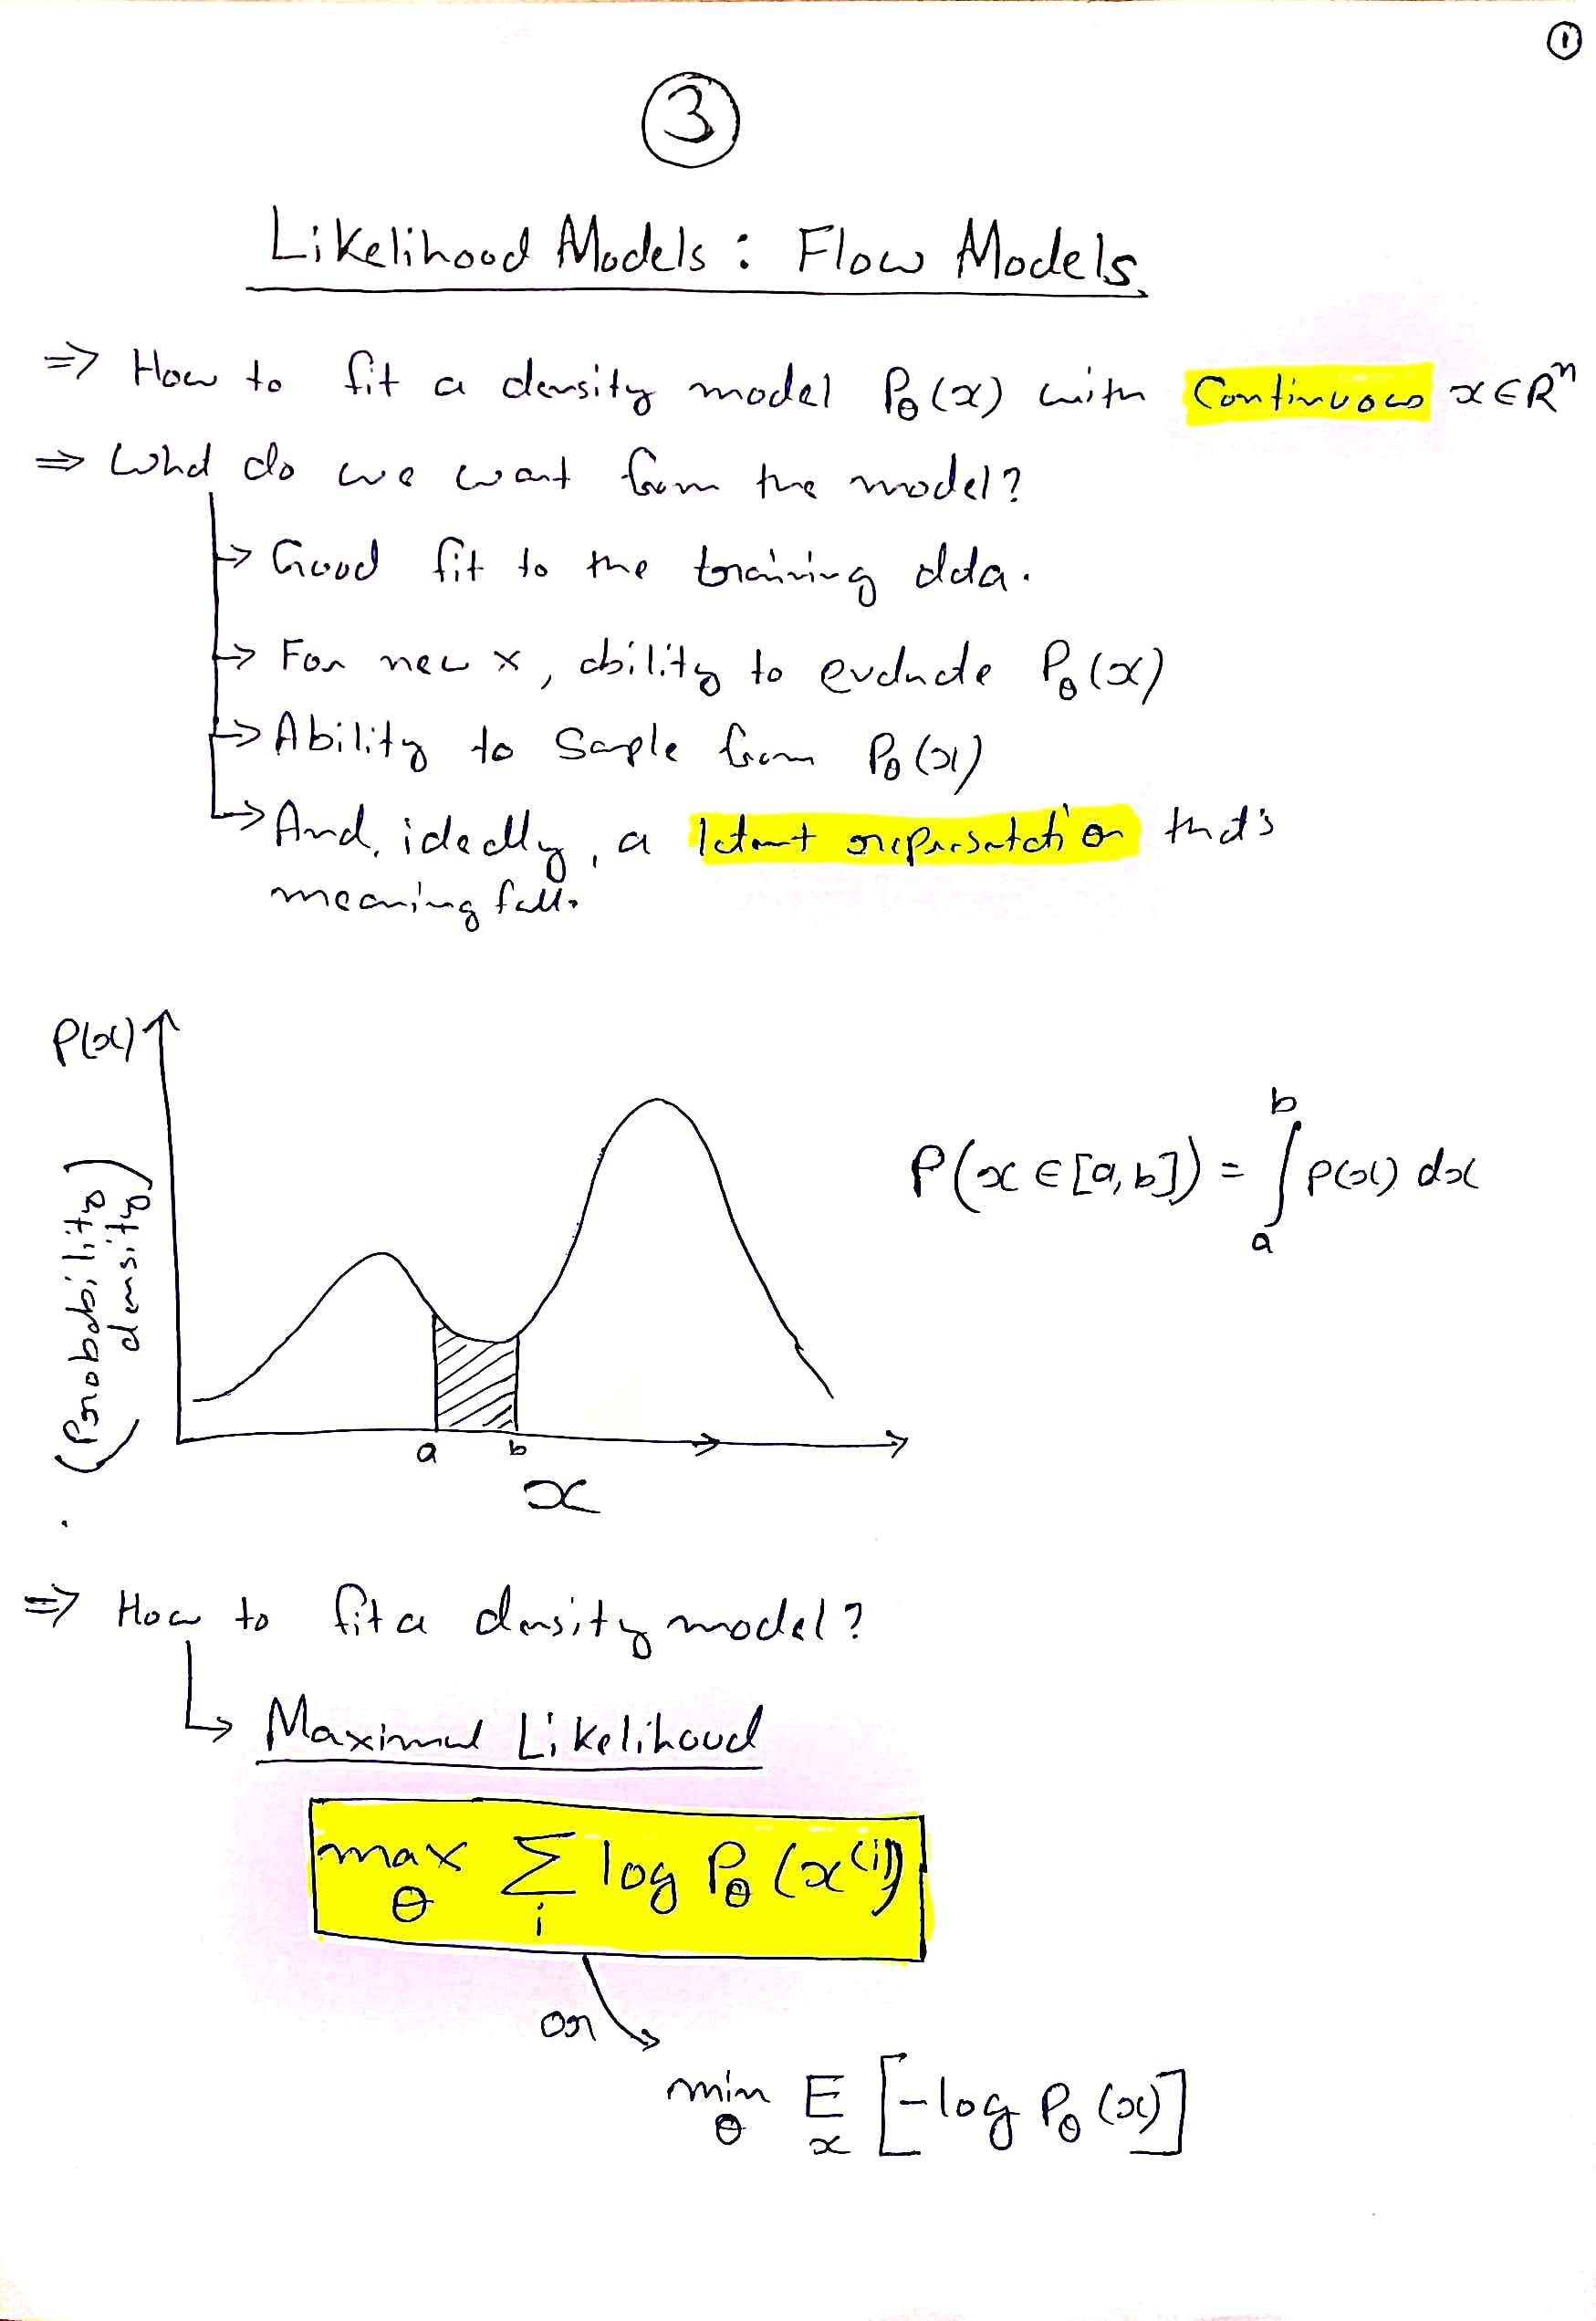 ①
③
Likelihood Models : Flow Models.
⇒ How to fit a density model Pθ(x) with Continuous x ∈ Rⁿ
⇒ What do we want from the model?
→ Good fit to the training data.
→ For new x, ability to evaluate Pθ(x)
→ Ability to Sample from Pθ(x)
→ And, ideally, a latent representation that's
meaningful.
P(x)
(Probability density)
P(x ∈ [a,b]) = ∫ₐᵇ P(x) dx
a b
x
⇒ How to fit a density model?
↳ Maximal Likelihood
max_θ Σ_i log Pθ(x⁽ⁱ⁾)
or
min_θ E_x [-log Pθ(x)]